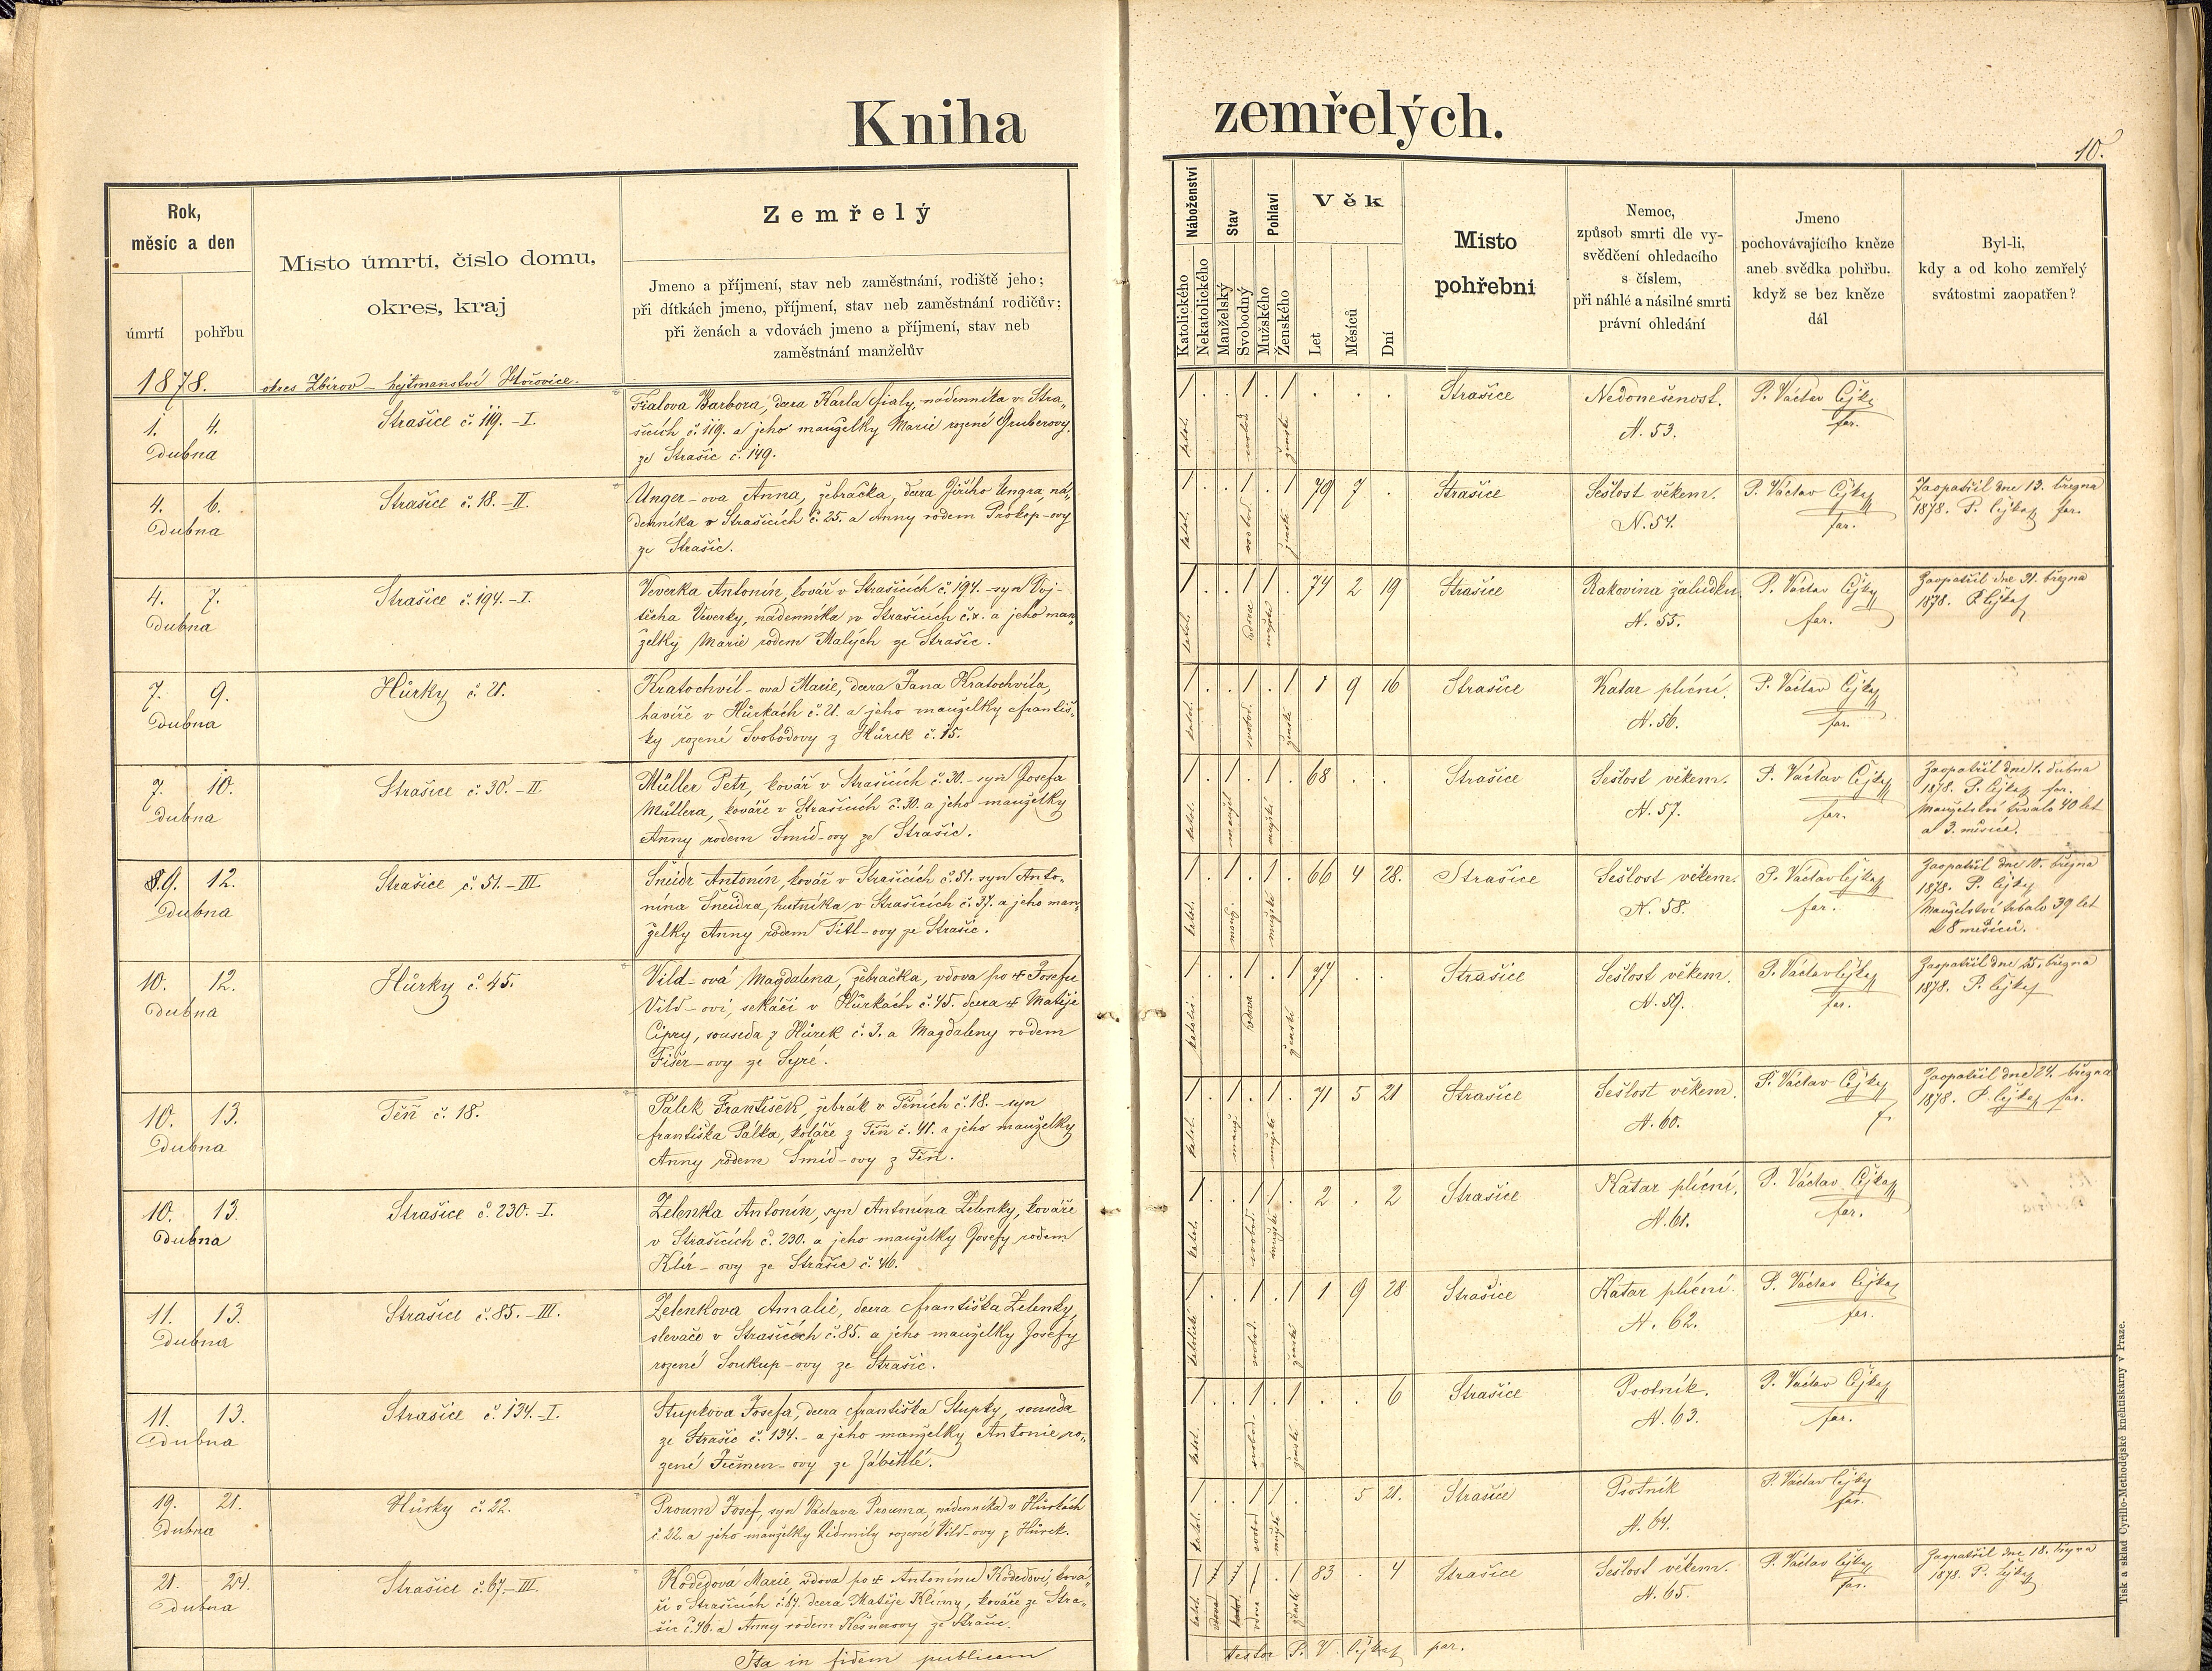 Kniha zemřelých.
10.
Rok,
měsíc a den
úmrtí pohřbu
Místo úmrtí, číslo domu,
okres, kraj
Zemřelý
Jmeno a příjmení, stav neb zaměstnání, rodiště jeho;
při dítkách jmeno, příjmení, stav neb zaměstnání rodičův;
při ženách a vdovách jmeno a příjmení, stav neb
zaměstnání manželův
Náboženství
Katolického
Nekatolického
Stav
Manželský
Svobodný
Pohlaví
Mužského
Ženského
Věk
Let
Měsíců
Dní
Místo
pohřební
Nemoc,
způsob smrti dle vy-
svědčení ohledacího
s číslem,
při náhlé a násilné smrti
právní ohledání
Jmeno
pochovávajícího kněze
aneb svědka pohřbu.
když se bez kněze
dál
Byl-li,
kdy a od koho zemřelý
svátostmi zaopatřen?
1878. okres Zbirov – hejtmanství Hořovice.
1. 4.
Dubna
Strašice č. 119. – I.
Fialova Barbora, dcera Karla Fialy, nádenníka v Stra„
šicích č. 119. a jeho manželky Marie rozené Gruberovy
ze Strašic č. 149.
1 . . 1 . 1 . . .
Strašice
Nedonešenost.
N. 53.
P. Václav Čejka
far.
4. 6.
Dubna
Strašice č. 18. – II.
Unger-ova Anna, žebračka, dcera Jiřího Ungra, ná„
denníka v Strašicích č. 25. a Anny rodem Prokop-ovy
ze Strašic.
1 . . 1 . 1 79 7 .
Strašice
Sešlost věkem.
N. 54.
P. Václav Čejka
far.
Zaopatřil dne 13. března
1878. P. Čejka far.
4. 7.
Dubna
Strašice č. 194. – I.
Veverka Antonín, kovář v Strašicích č. 194. – syn Voj-
těcha Veverky, nádenníka v Strašicích č. x. a jeho man„
želky Marie rodem Malých ze Strašic.
1 . . 1 1 . 74 2 19
Strašice
Rakovina žaludku
N. 55.
P. Václav Čejka
far.
Zaopatřil dne 31. března
1878. P. Čejka
7. 9.
Dubna
Hůrky č. 21.
Kratochvíl-ova Marie, dcera Jana Kratochvíla,
havíře v Hůrkách č. 21. a jeho manželky Františ„
ky rozené Svobodovy z Hůrek č. 15.
1 . . 1 . 1 1 9 16
Strašice
Katar plicní.
N. 56.
P. Václav Čejka
far.
7. 10.
Dubna
Strašice č. 30. – II.
Müller Petr, kovář v Strašicích č. 30. – syn Josefa
Müllera, kováře v Strašicích č. 30. a jeho manželky
Anny rodem Šmíd-ovy ze Strašic.
1 . 1 . 1 . 68 . .
Strašice
Sešlost věkem.
N. 57.
P. Václav Čejka
far.
Zaopatřil dne 1. dubna
1878. P. Čejka far.
Manželství trvalo 40 let
a 3. měsíce.
9. 12.
Dubna
Strašice č. 51. – III
Šneidr Antonín, kovář v Strašicích č. 51. syn Anto-
nína Šneidra, hutníka v Strašicích č. 37. a jeho man„
želky Anny rodem Titl-ovy ze Strašic.
1 . 1 . 1 . 66 4 28.
Strašice
Sešlost věkem.
N. 58.
P. Václav Čejka
far.
Zaopatřil dne 10. března
1878. P. Čejka
Manželství trvalo 39 let
a 8 měsíců.
10. 12.
Dubna
Hůrky č. 45.
Vild-ová Magdalena, žebračka, vdova po † Josefu
Vild-ovi, sekáči v Hůrkách č. 45. dcera † Matěje
Cipry, souseda z Hůrek č. 3. a Magdaleny rodem
Fišer-ovy ze Syré.
1 . . 1 . 1 77 . .
Strašice
Sešlost věkem.
N. 59.
P. Václav Čejka
far.
Zaopatřil dne 25. března
1878. P. Čejka
10. 13.
Dubna
Těň č. 18.
Pálek František, žebrák v Těních č. 18. – syn
Františka Pálka, koláře z Těň č. 41. a jeho manželky
Anny rodem Šmíd-ovy z Těň.
1 . 1 . 1 . 71 5 21
Strašice
Sešlost věkem.
N. 60.
P. Václav Čejka
f.
Zaopatřil dne 24. března
1878. P. Čejka far.
10. 13.
Dubna
Strašice č. 230. – I.
Zelenka Antonín, syn Antonína Zelenky, kováře
v Strašicích č. 230. a jeho manželky Josefy rodem
Klír-ovy ze Strašic č. 46.
1 . . 1 1 . 2 . 2
Strašice
Katar plicní.
N. 61.
P. Václav Čejka
far.
11. 13.
Dubna
Strašice č. 85. – III.
Zelenkova Amalie, dcera Františka Zelenky,
slevače v Strašicích č. 85. a jeho manželky Josefy
rozené Soukup-ovy ze Strašic.
1 . . 1 . 1 1 9 28
Strašice
Katar plicní.
N. 62.
P. Václav Čejka
far.
11. 13.
Dubna
Strašice č. 134. – I.
Stupkova Josefa, dcera Františka Stupky, souseda
ze Strašic č. 134. – a jeho manželky Antonie ro„
zené Ječmen-ovy ze Záběhlé.
1 . . 1 . 1 . . 6
Strašice
Psotník.
N. 63.
P. Václav Čejka
far.
19. 21.
Dubna
Hůrky č. 22.
Proum Josef, syn Václava Prouma, nádenníka v Hůrkách
č. 22. a jeho manželky Lidmily rozené Vild-ovy z Hůrek.
1 . . 1 1 . 5 21.
Strašice
Psotník
N. 64.
P. Václav Čejka
far.
21. 24.
Dubna
Strašice č. 67. – III.
Kodedová Marie, vdova po † Antonínu Kodedovi, ková„
ři v Strašicích č. 67. dcera Matěje Klímy, kováře ze Stra„
šic č. 46. a Anny rodem Kesnerovy ze Strašic.
1 1 . 1 83 . 4
Strašice
Sešlost věkem.
N. 65.
P. Václav Čejka
far.
Zaopatřil dne 18. března
1878. P. Čejka
Ita in fidem publicam
testor P. V. Čejka par.
Tisk a sklad Cyrillo-Methodějské kněhtiskárny v Praze.